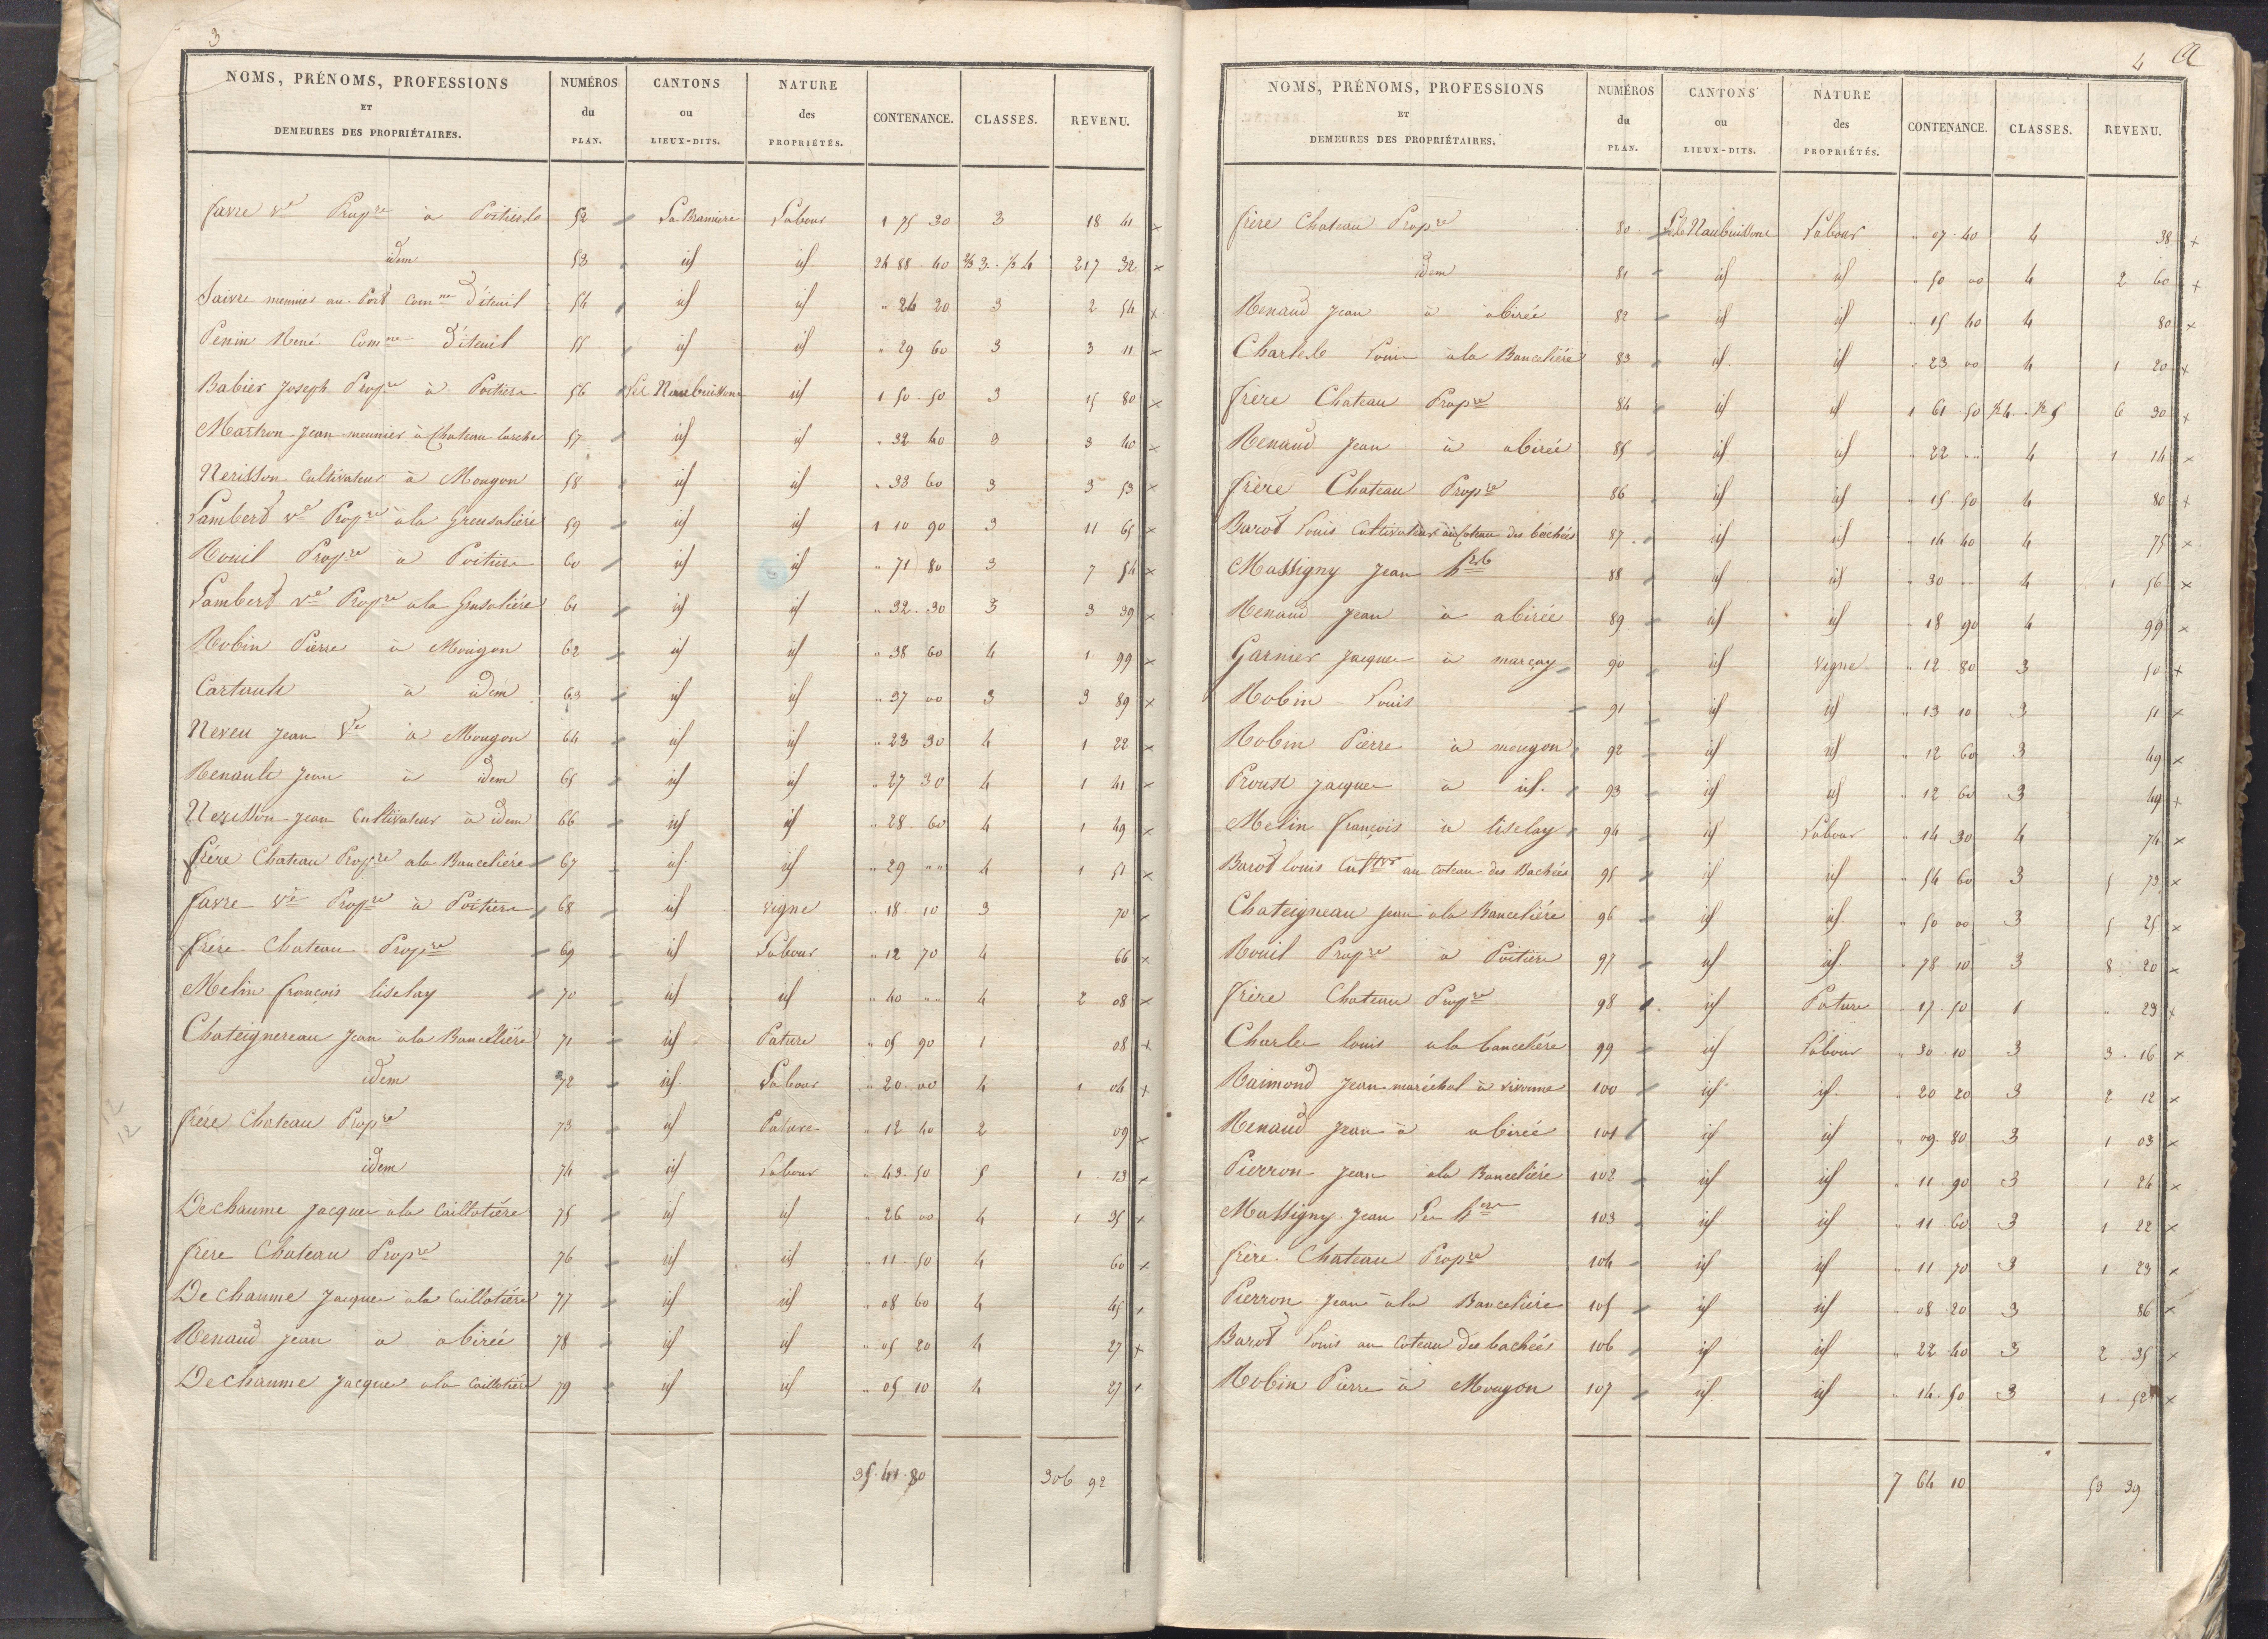 3
NOMS, PRÉNOMS, PROFESSIONS ET DEMEURES DES PROPRIÉTAIRES. NUMÉROS du PLAN. CANTONS ou LIEUX-DITS. NATURE des PROPRIÉTÉS. CONTENANCE. CLASSES. REVENU.
favre ve Propre à Poitiers 52 La Bramiere Labour 1 75 30 3 18 41 x
idem 53 id id 24 88 40 2/3 3. 1/3 4 217 32 x
Saivre meunier au Port comne d'iteuil 54 id id " 24 20 3 2 54 x
Penin René comne d'iteuil 55 id id " 29 60 3 3 11 x
Babier Joseph Propre à Poitiers 56 Naubuissons id 1 50 50 3 15 80 x
Martron Jean meunier à Chateau larcher 57 id id " 32 40 3 3 40 x
Nerisson cultivateur à Mougon 58 id id " 33 60 3 3 53 x
Lambert ve Propre à la Greusalière 59 id id 1 10 90 3 11 65 x
Rouil Propre à Poitiers 60 id id " 71 80 3 7 54 x
Lambert ve Propre a la Grusalière 61 id id " 32 30 3 3 39 x
Robin Pierre à Mougon 62 id id " 38 60 4 1 99 x
à idem 63 id id " 37 00 3 3 89 x
Neveu Jean à Mougon 64 id id " 23 30 4 1 22 x
Renault Jean à idem 65 id id " 27 30 4 1 41 x
Nerisson Jean Cultivateur à idem 66 id id " 28 60 4 1 49 x
frére Chateau Propre a la Banceliére 67 id id " 29 " " 4 1 51 x
favre ve Propre à Poitiers 68 id vigne " 18 10 3 70 x
frére Chateau Propre 69 id Labour " 12 70 4 66 x
Melin françois liselay 70 id id " 40 " " 4 2 08 x
Chateignereau Jean à la Banceliére 71 id Pature " 05 90 1 08 x
idem 72 id Labour " 20 00 4 1 04 x
frére Chateau Propre 73 id Pature " 12 40 2 09 x
idem 74 id Labour " 43 50 5 1 13 x
Dechaume Jacques à la Caillotière 75 id id " 26 00 4 1 35 x
frére Chateau Propre 76 id id " 11 50 4 60 x
De chaume Jacques à la Caillotiére 77 id id " 08 60 4 45 x
Renaud Jean à abirée 78 id id " 05 20 4 27 x
Dechaume Jacques a la Caillotiére 79 id id " 05 10 4 27 x
35 41 80 306 92
12
12
4
NOMS, PRÉNOMS, PROFESSIONS ET DEMEURES DES PROPRIÉTAIRES. NUMÉROS du PLAN. CANTONS ou LIEUX-DITS. NATURE des PROPRIÉTÉS. CONTENANCE. CLASSES. REVENU.
frère Chateau Propre 80 Naubuissons Labour " 07 40 4 38 x
idem 81 id id " 50 00 4 2 60 x
Renaud Jean à abirée 82 id id " 15 40 4 80 x
Charles Louis à la Banceliére 83 id id " 23 00 4 1 20 x
frère Chateau Propre 84 id id 1 61 50 1/2 4. 1/2 5 6 30 x
Renaud Jean à abirée 85 id id " 22 " " 4 1 14 x
frère Chateau Propre 86 id id " 15 50 4 80 x
Barot Louis Cultivateur au Coteau des bachées 87 id id " 14 40 4 75 x
Massigny Jean 88 id id " 30 " " 4 1 56 x
Renaud Jean à abirée 89 id id " 18 90 4 99 x
Garnier Jacques à marçay 90 id vigne " 12 80 3 50 x
Robin Louis 91 id id " 13 10 3 51 x
Robin Pierre à mougon 92 id id " 12 60 3 49 x
Proust Jacques à id. 93 id id " 12 60 3 49 x
Melin françois à liselay 94 id Labour " 14 30 4 74 x
Barot louis Cultivr au coteau des Bachées 95 id id " 54 60 3 5 73 x
Chateigneau Jean à la Banceliére 96 id id " 50 00 3 5 25 x
Rouil Propre à Poitiers 97 id id " 78 10 3 8 20 x
frère Chateau Propre 98 id Pature " 17 50 1 " 23 x
Charles louis a la banceliére 99 id Labour " 30 10 3 3 16 x
Raimond Jean maréchal à vivonne 100 id id " 20 20 3 2 12 x
Renaud Jean à abirée 101 id id " 09 80 3 1 03 x
Pierron Jean à la Banceliére 102 id id " 11 90 3 1 24 x
Massigny Jean 103 id id " 11 60 3 1 22 x
frére Chateau Propre 104 id id " 11 70 3 1 23 x
Pierron Jean à la Banceliére 105 id id " 08 20 3 86 x
Barot Louis au Coteau des bachées 106 id id " 22 40 3 2 35 x
Robin Pierre à Mougon 107 id id " 14 50 3 1 52 x
7 64 10 53 39